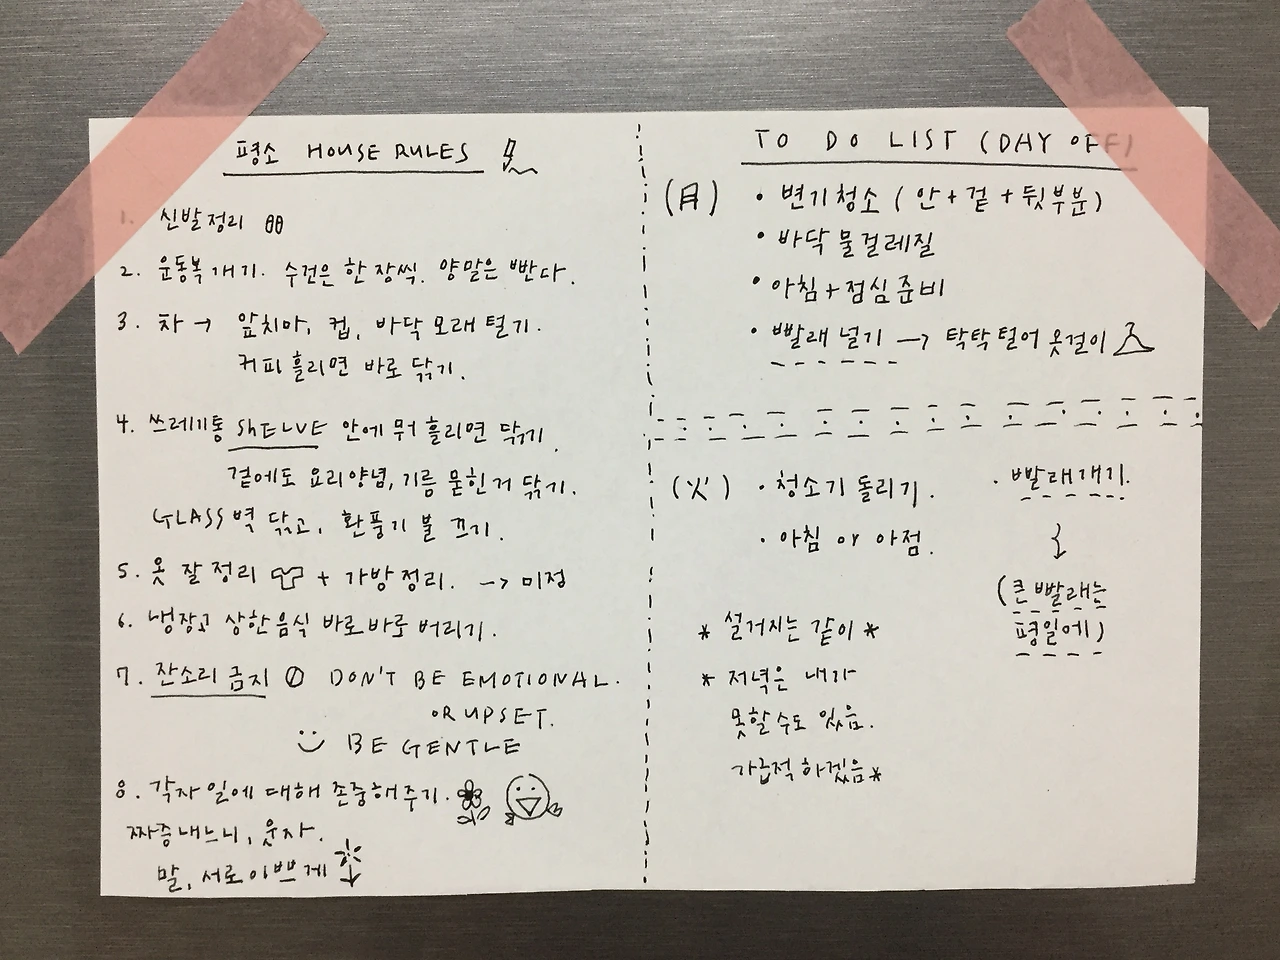 평소 HOUSE RULES
1. 신발정리
2. 운동복 개기. 수건은 한 장씩. 양말은 빤다.
3. 차 → 앞치마, 컵, 바닥 모래 털기.
커피 흘리면 바로 닦기.
4. 쓰레기통 ShELVE 안에 뭐 흘리면 닦기.
겉에도 요리양념, 기름 묻힌거 닦기.
GLASS벽 닦고, 환풍기 불 끄기.
5. 옷 잘 정리 + 가방정리. → 미정
6. 냉장고 상한음식 바로바로 버리기.
7. 잔소리 금지 DON'T BE EMOTIONAL.
OR UPSET.
BE GENTLE
8. 각자 일에 대해 존중해주기.
짜증내느니, 웃자.
말, 서로 이쁘게
TO DO LIST (DAY OFF)
(月) • 변기청소 (안+겉+뒷부분)
• 바닥 물걸레질
• 아침+점심준비
• 빨래 널기 → 탁탁털어 옷걸이
(火) • 청소기 돌리기.
• 아침 or 아점.
• 빨래개기.
(큰 빨래는
평일에)
* 설거지는 같이 *
* 저녁은 내가
못할 수도 있음.
가급적 하겠음 *